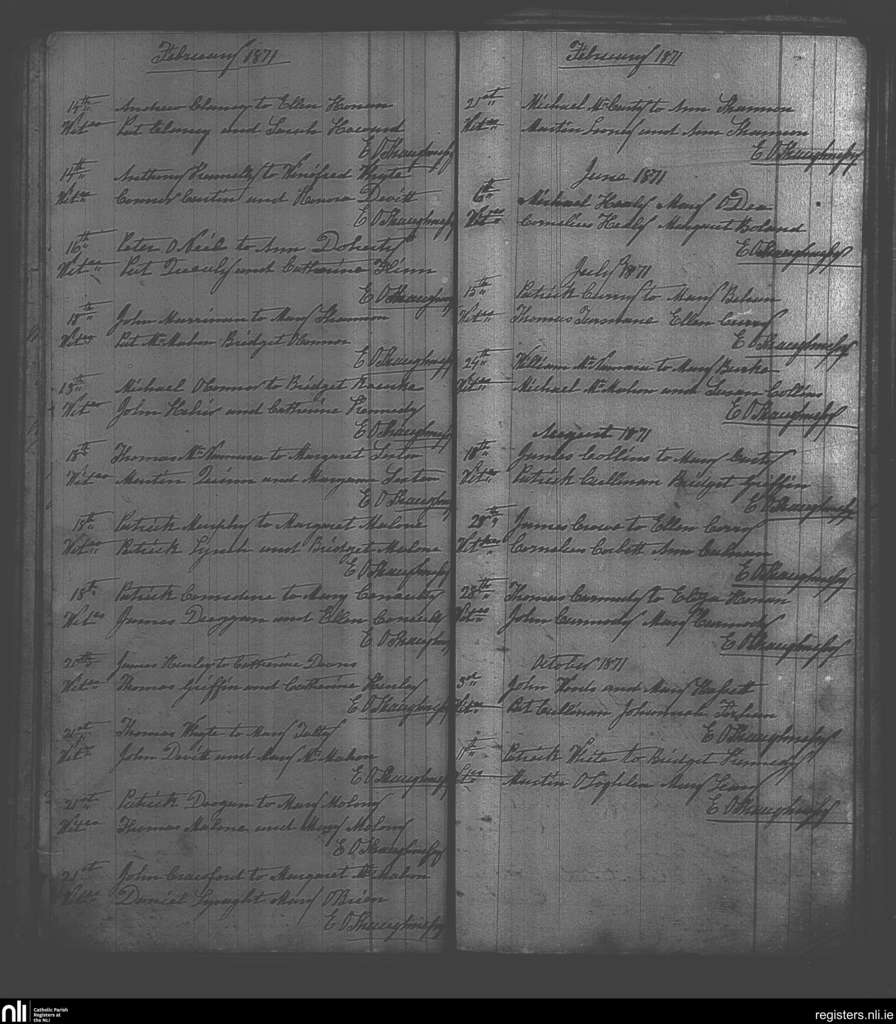 February 1871
14th Andrew Clancy to Ellen Honan
Witss Pat Clancy and Sarah Howard
E O Shaughnessy
14th Anthony Kennelly to Winifred Whyte
Witss Connor Custin and Honora Devitt
E O Shaughnessy
16th Peter O Neil to Ann Doherty
Witss Pat Tuculy and Catherine Flinn
E O Shaughnessy
18th John Marrinan to Mary Shannon
Witss Pat McMahon Bridget O Connor
E O Shaughnessy
18th Michael O Connor to Bridget Rourke
Witss John Hehir and Catherine Kennedy
E O Shaughnessy
18th Thomas McNamara to Margaret Sexton
Witss Martin Quinn and Maryann Sexton
E O Shaughnessy
18th Patrick Murphy to Margaret Malone
Witss Patrick Lynch and Bridget Malone
E O Shaughnessy
18th Patrick Considine to Mary
Witss James Deoggan and Ellen
E O Shaughnessy
20th James Henley to Catherine Downs
Witss Thomas Griffin and Catherine Henley
E O Shaughnessy
21st Thomas Whyte to Mary Talty
Witss John Devitt and Mary McMahon
E O Shaughnessy
21st Patrick Deogan to Mary Molony
Witss Thomas Malone and Mary Molony
E O Shaughnessy
21st John Crawford to Margaret McMahon
Witss Daniel Lysaght Mary O Brien
E O Shaughnessy
February 1871
21st Michael McCarty to Ann Shannon
Witss Martin Looney and Ann Shannon
E O Shaughnessy
June 1871
6th Michael Healy Mary O Dea
Witss Cornelius Healy Margaret Boland
E O Shaughnessy
July 1871
15th Patrick Curry to Mary Behan
Witss Thomas Ellen Curry
E O Shaughnessy
24th William McNamara to Mary Burke
Witss Michael McMahon and Susan Collins
E O Shaughnessy
August 1871
18th James Collins to Mary
Witss Patrick Cullinan Bridget Griffin
E O Shaughnessy
28th James Crowe to Ellen Curry
Witss Cornelius Corbett Ann
E O Shaughnessy
28th Thomas Carmody to Eliza Honan
Witss John Carmody Mary Carmody
E O Shaughnessy
October 1871
3rd John Woods and Mary
Witss Pat Cullinan Johannah
E O Shaughnessy
Patrick White to Bridget Kennedy
Witss Martin O Loghlen Mary Leary
E O Shaughnessy
nli Catholic Parish
Registers at
the NLI
registers.nli.ie